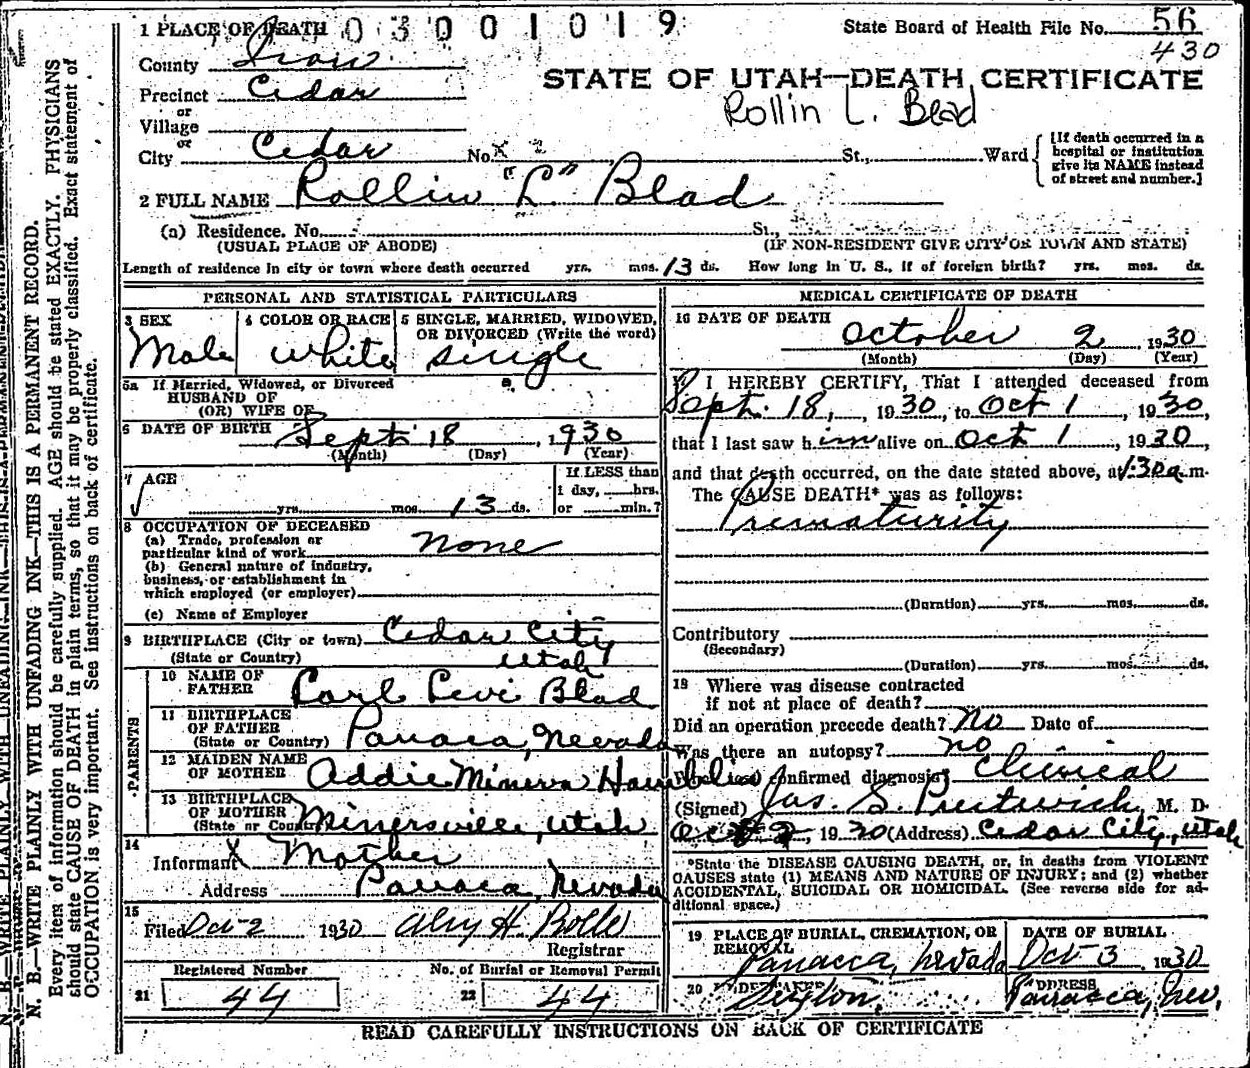 1 PLACE OF DEATH 03001019
State Board of Health File No. 56
430
County Iron
STATE OF UTAH—DEATH CERTIFICATE
Precinct Cedar
Rollin L. Blad
or
Village
or
City Cedar No. St., Ward
[If death occurred in a hospital or institution give its NAME instead of street and number.]
2 FULL NAME Rollin "L" Blad
(a) Residence. No. St.,
(USUAL PLACE OF ABODE) (IF NON-RESIDENT GIVE CITY OR TOWN AND STATE)
Length of residence in city or town where death occurred yrs. mos. 13 ds. How long in U. S., if of foreign birth? yrs. mos. ds.
PERSONAL AND STATISTICAL PARTICULARS
3 SEX Male
4 COLOR OR RACE white
5 SINGLE, MARRIED, WIDOWED, OR DIVORCED (Write the word) single
5a If Married, Widowed, or Divorced
HUSBAND OF
(OR) WIFE OF
6 DATE OF BIRTH Sept 18, 1930
(Month) (Day) (Year)
7 AGE
yrs. mos. 13 ds.
If LESS than
1 day, hrs.
or min.?
8 OCCUPATION OF DECEASED
(a) Trade, profession or
particular kind of work none
(b) General nature of industry,
business, or establishment in
which employed (or employer)
(c) Name of Employer
9 BIRTHPLACE (City or town) Cedar City
(State or Country) Utah
PARENTS
10 NAME OF
FATHER Carl Levi Blad
11 BIRTHPLACE
OF FATHER
(State or Country) Panaca, Nevada
12 MAIDEN NAME
OF MOTHER Addie Minerva Hamblin
13 BIRTHPLACE
OF MOTHER
(State or Country) Minersville, Utah
14
Informant X Mother
Address Panaca, Nevada
15
Filed Oct 2 1930
Registrar
Registered Number
21 44
No. of Burial or Removal Permit
22 44
MEDICAL CERTIFICATE OF DEATH
16 DATE OF DEATH
October 2, 1930
(Month) (Day) (Year)
17 I HEREBY CERTIFY, That I attended deceased from
Sept. 18, 1930, to Oct 1, 1930,
that I last saw him alive on Oct 1, 1930,
and that death occurred, on the date stated above, at 1:30a.m.
The CAUSE DEATH* was as follows:
Prematurity
(Duration) yrs. mos. ds.
Contributory
(Secondary)
(Duration) yrs. mos. ds.
18 Where was disease contracted
if not at place of death?
Did an operation precede death? no Date of
Was there an autopsy? no
confirmed diagnosis? Clinical
(Signed) Jas. S. Prestwich, M. D.
Oct 2, 1930 (Address) Cedar City, Utah
*State the DISEASE CAUSING DEATH, or, in deaths from VIOLENT
CAUSES state (1) MEANS AND NATURE OF INJURY; and (2) whether
ACCIDENTAL, SUICIDAL OR HOMICIDAL. (See reverse side for ad-
ditional space.)
19 PLACE OF BURIAL, CREMATION, OR
REMOVAL
Panacca, Nevada
DATE OF BURIAL
Oct 3, 1930
20 UNDERTAKER
ADDRESS
Panacca, Nev.
READ CAREFULLY INSTRUCTIONS ON BACK OF CERTIFICATE
N. B.—WRITE PLAINLY WITH UNFADING INK—THIS IS A PERMANENT RECORD.
Every item of information should be carefully supplied. AGE should be stated EXACTLY. PHYSICIANS
should state CAUSE OF DEATH in plain terms, so that it may be properly classified. Exact statement of
OCCUPATION is very important. See instructions on back of certificate.